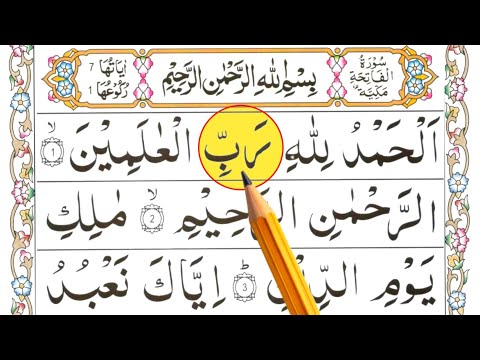 اٰيَاتُهَا 7
رُكُوْعُهَا 1
بِسْمِ اللّٰهِ الرَّحْمٰنِ الرَّحِيْمِ
سُوْرَةُ
الْفَاتِحَةِ
مَكِّيَّةٌ
اَلْحَمْدُ لِلّٰهِ رَبِّ الْعٰلَمِيْنَ ۙ ﴿1﴾
الرَّحْمٰنِ الرَّحِيْمِ ۙ ﴿2﴾ مٰلِكِ
يَوْمِ الدِّيْنِ ؕ ﴿3﴾ اِيَّاكَ نَعْبُدُ